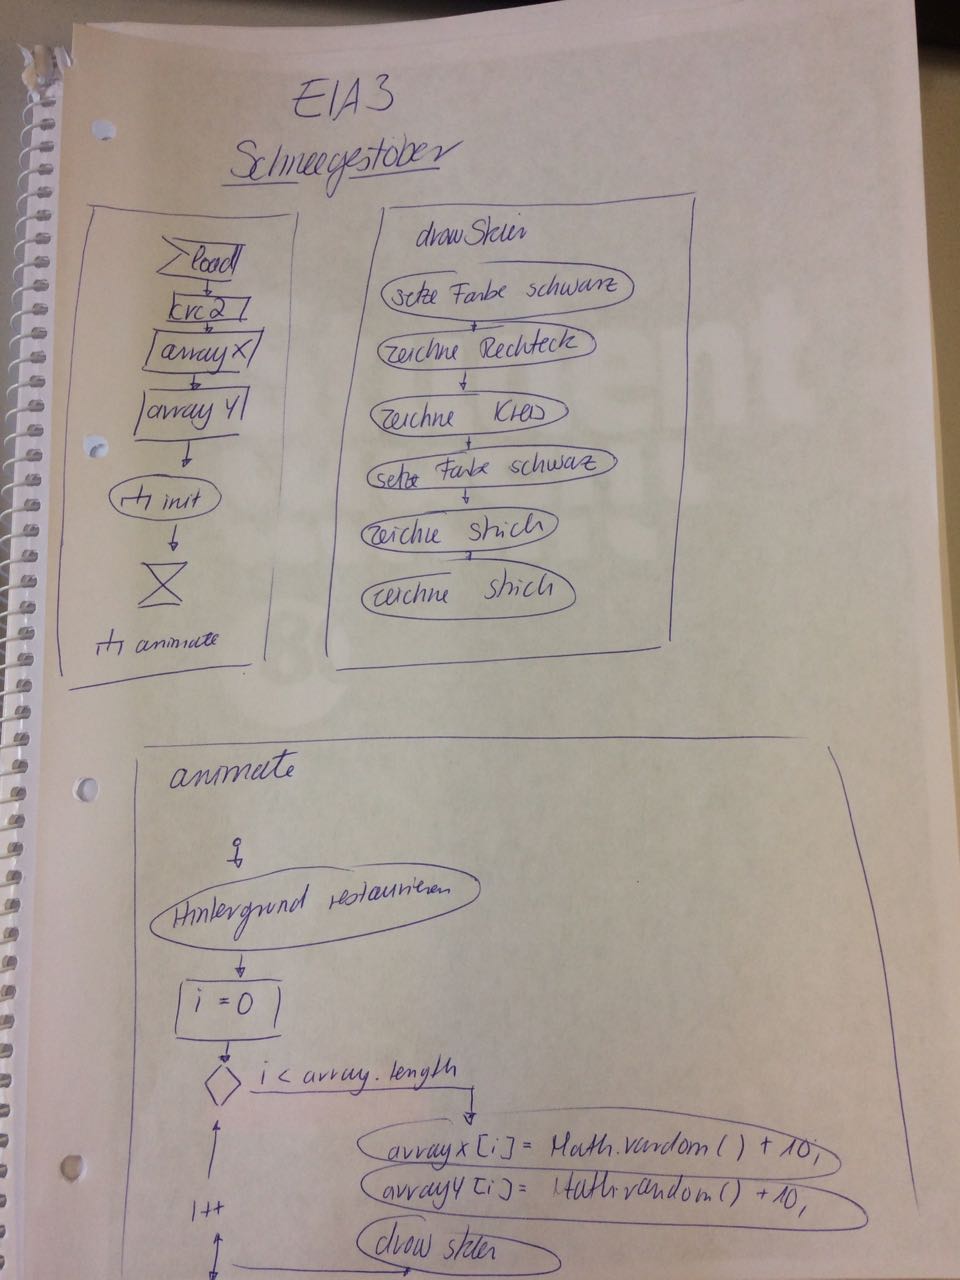 EIA3
Schneegestöber
load
crc2
arrayX
arrayY
init
animate
drawSkier
setze Farbe schwarz
zeichne Rechteck
zeichne Kreis
setze Farbe schwarz
zeichne Strich
zeichne Strich
animate
Hintergrund restaurieren
i = 0
i < array.length
arrayX[i] = Math.random() + 10;
arrayY[i] = Math.random() + 10;
i++
draw skier